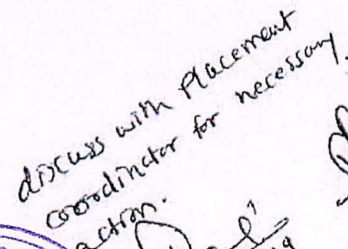 discuss with Placement
coordinator for necessary
action.